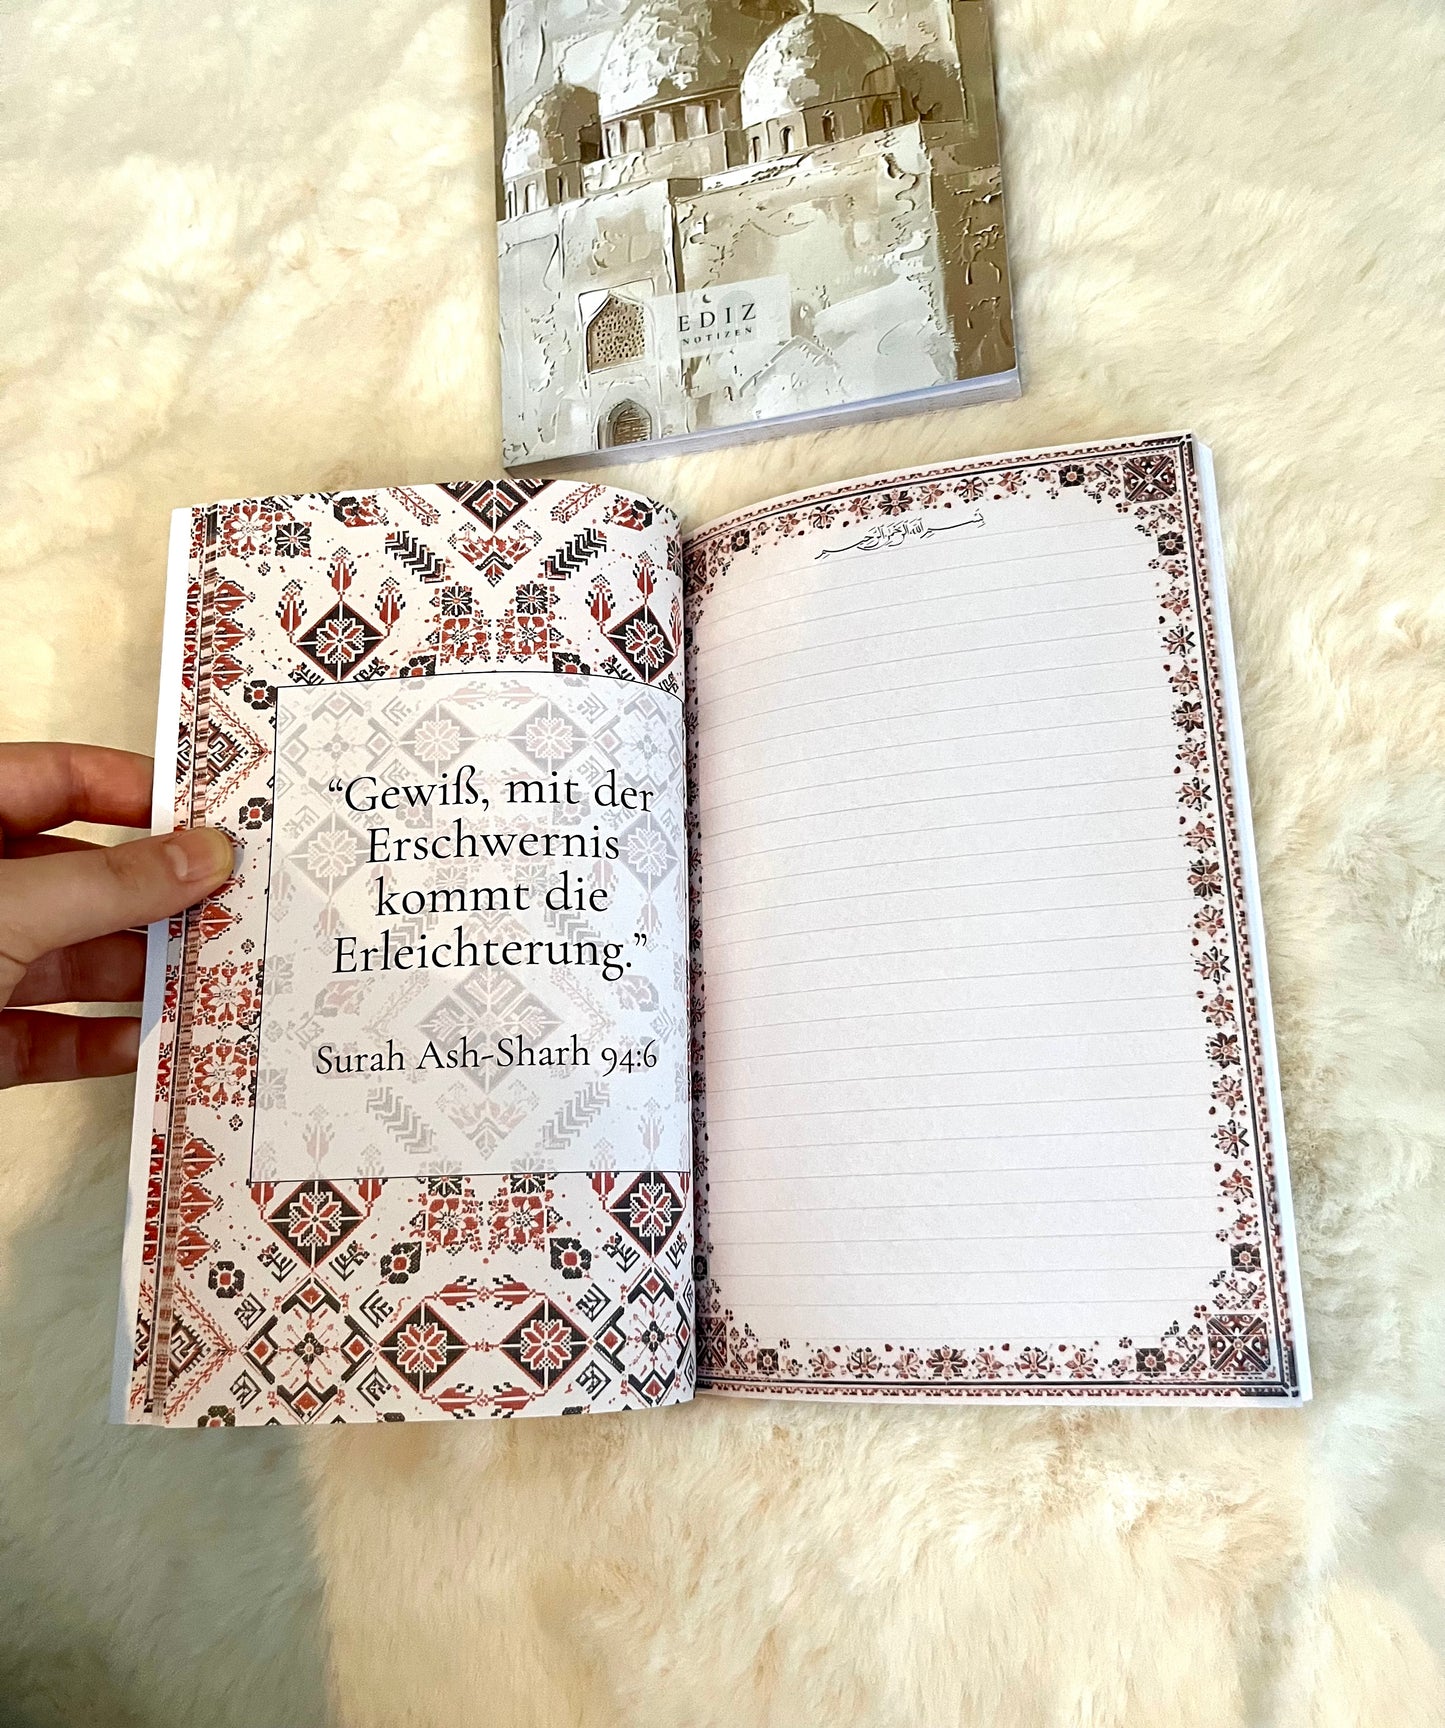 EDIZ
NOTIZEN
بسم الله الرحمن الرحيم
“Gewiß, mit der
Erschwernis
kommt die
Erleichterung.”
Surah Ash-Sharh 94:6